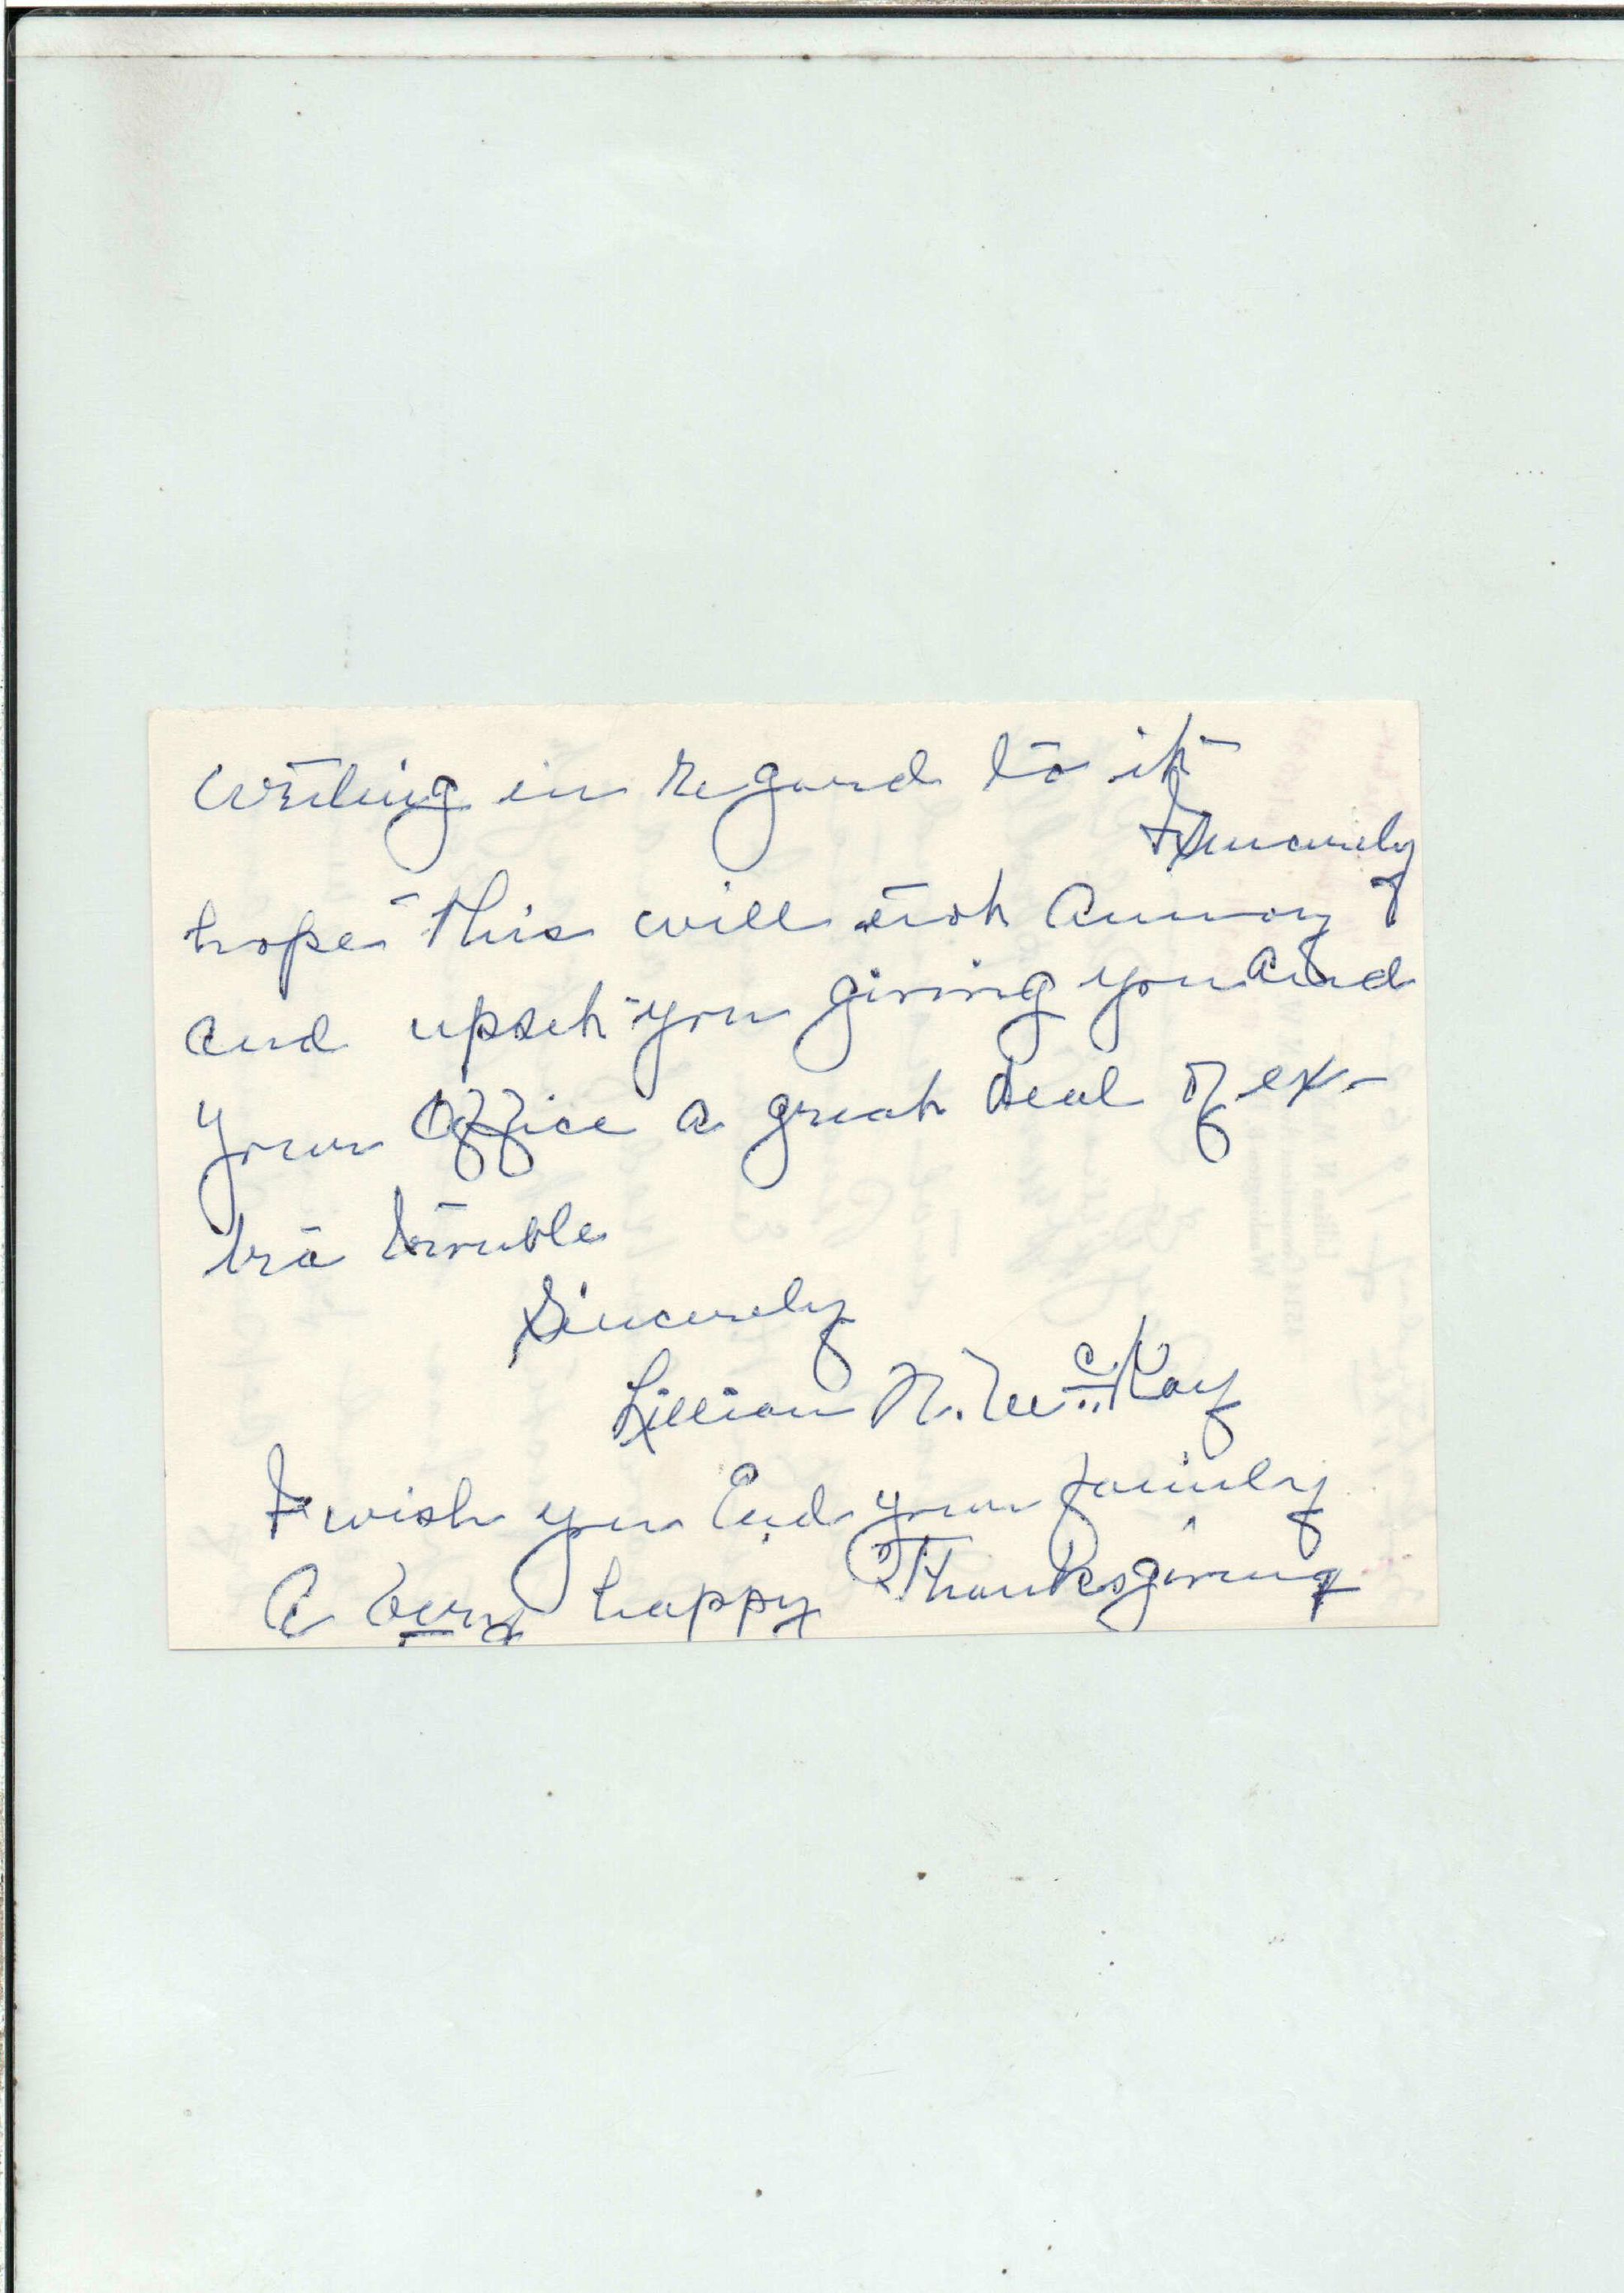 writing in regard to it
I sincerely
hope this will not annoy
and upset you giving you and
your office a great deal of ex-
tra trouble
Sincerely
Lillian N. McKay
I wish you and your family
A very happy Thanksgiving